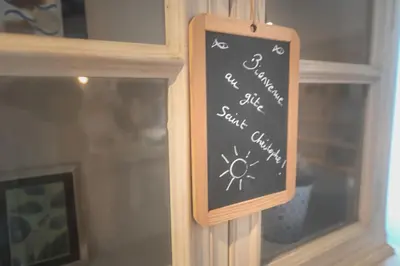 Bienvenue
au gîte
Saint Christophe !